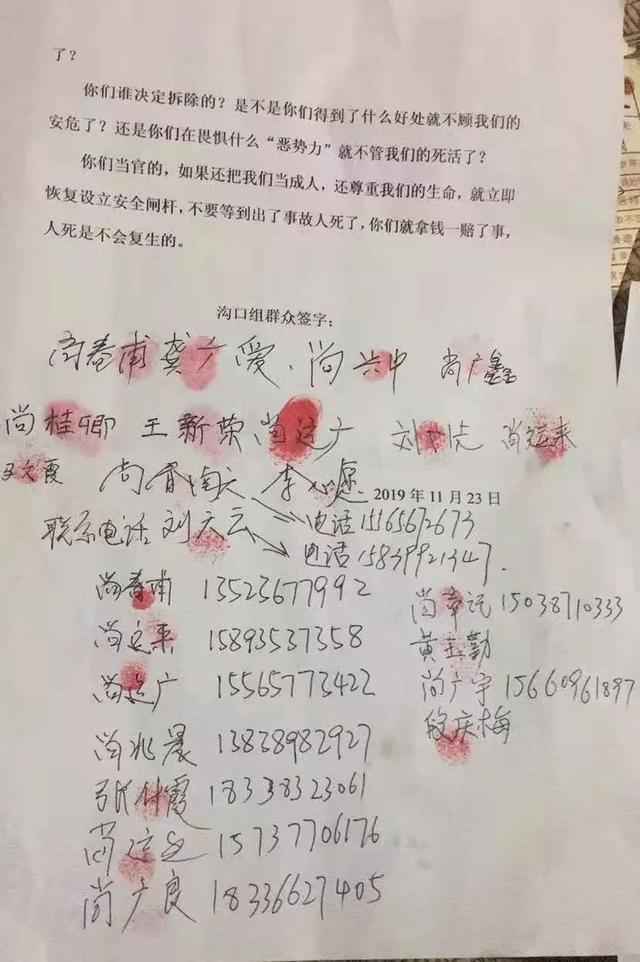 了？
你们谁决定拆除的？是不是你们得到了什么好处就不顾我们的
安危了？还是你们在畏惧什么“恶势力”就不管我们的死活了？
你们当官的，如果还把我们当成人，还尊重我们的生命，就立即
恢复设立安全闸杆，不要等到出了事故人死了，你们就拿钱一赔了事，
人死是不会复生的。
沟口组群众签字：
尚春甫 龚广爱、尚兴中 尚广鑫
尚桂卿 王新荣 尚运广 刘 尚运来
文霞 尚 李 愿
2019 年 11 月 23 日
联系电话 刘庆云 电话15165672673
电话15839921347.
尚春甫 13523677992
尚章说 15038710333
尚运来 15893537358
黄玉勤
尚运广 15565773422
尚广宇 15660961897
尚兆晨 13838982927
段庆梅
张付霞 18338323061
尚运 15737706176
尚广良 18336627405